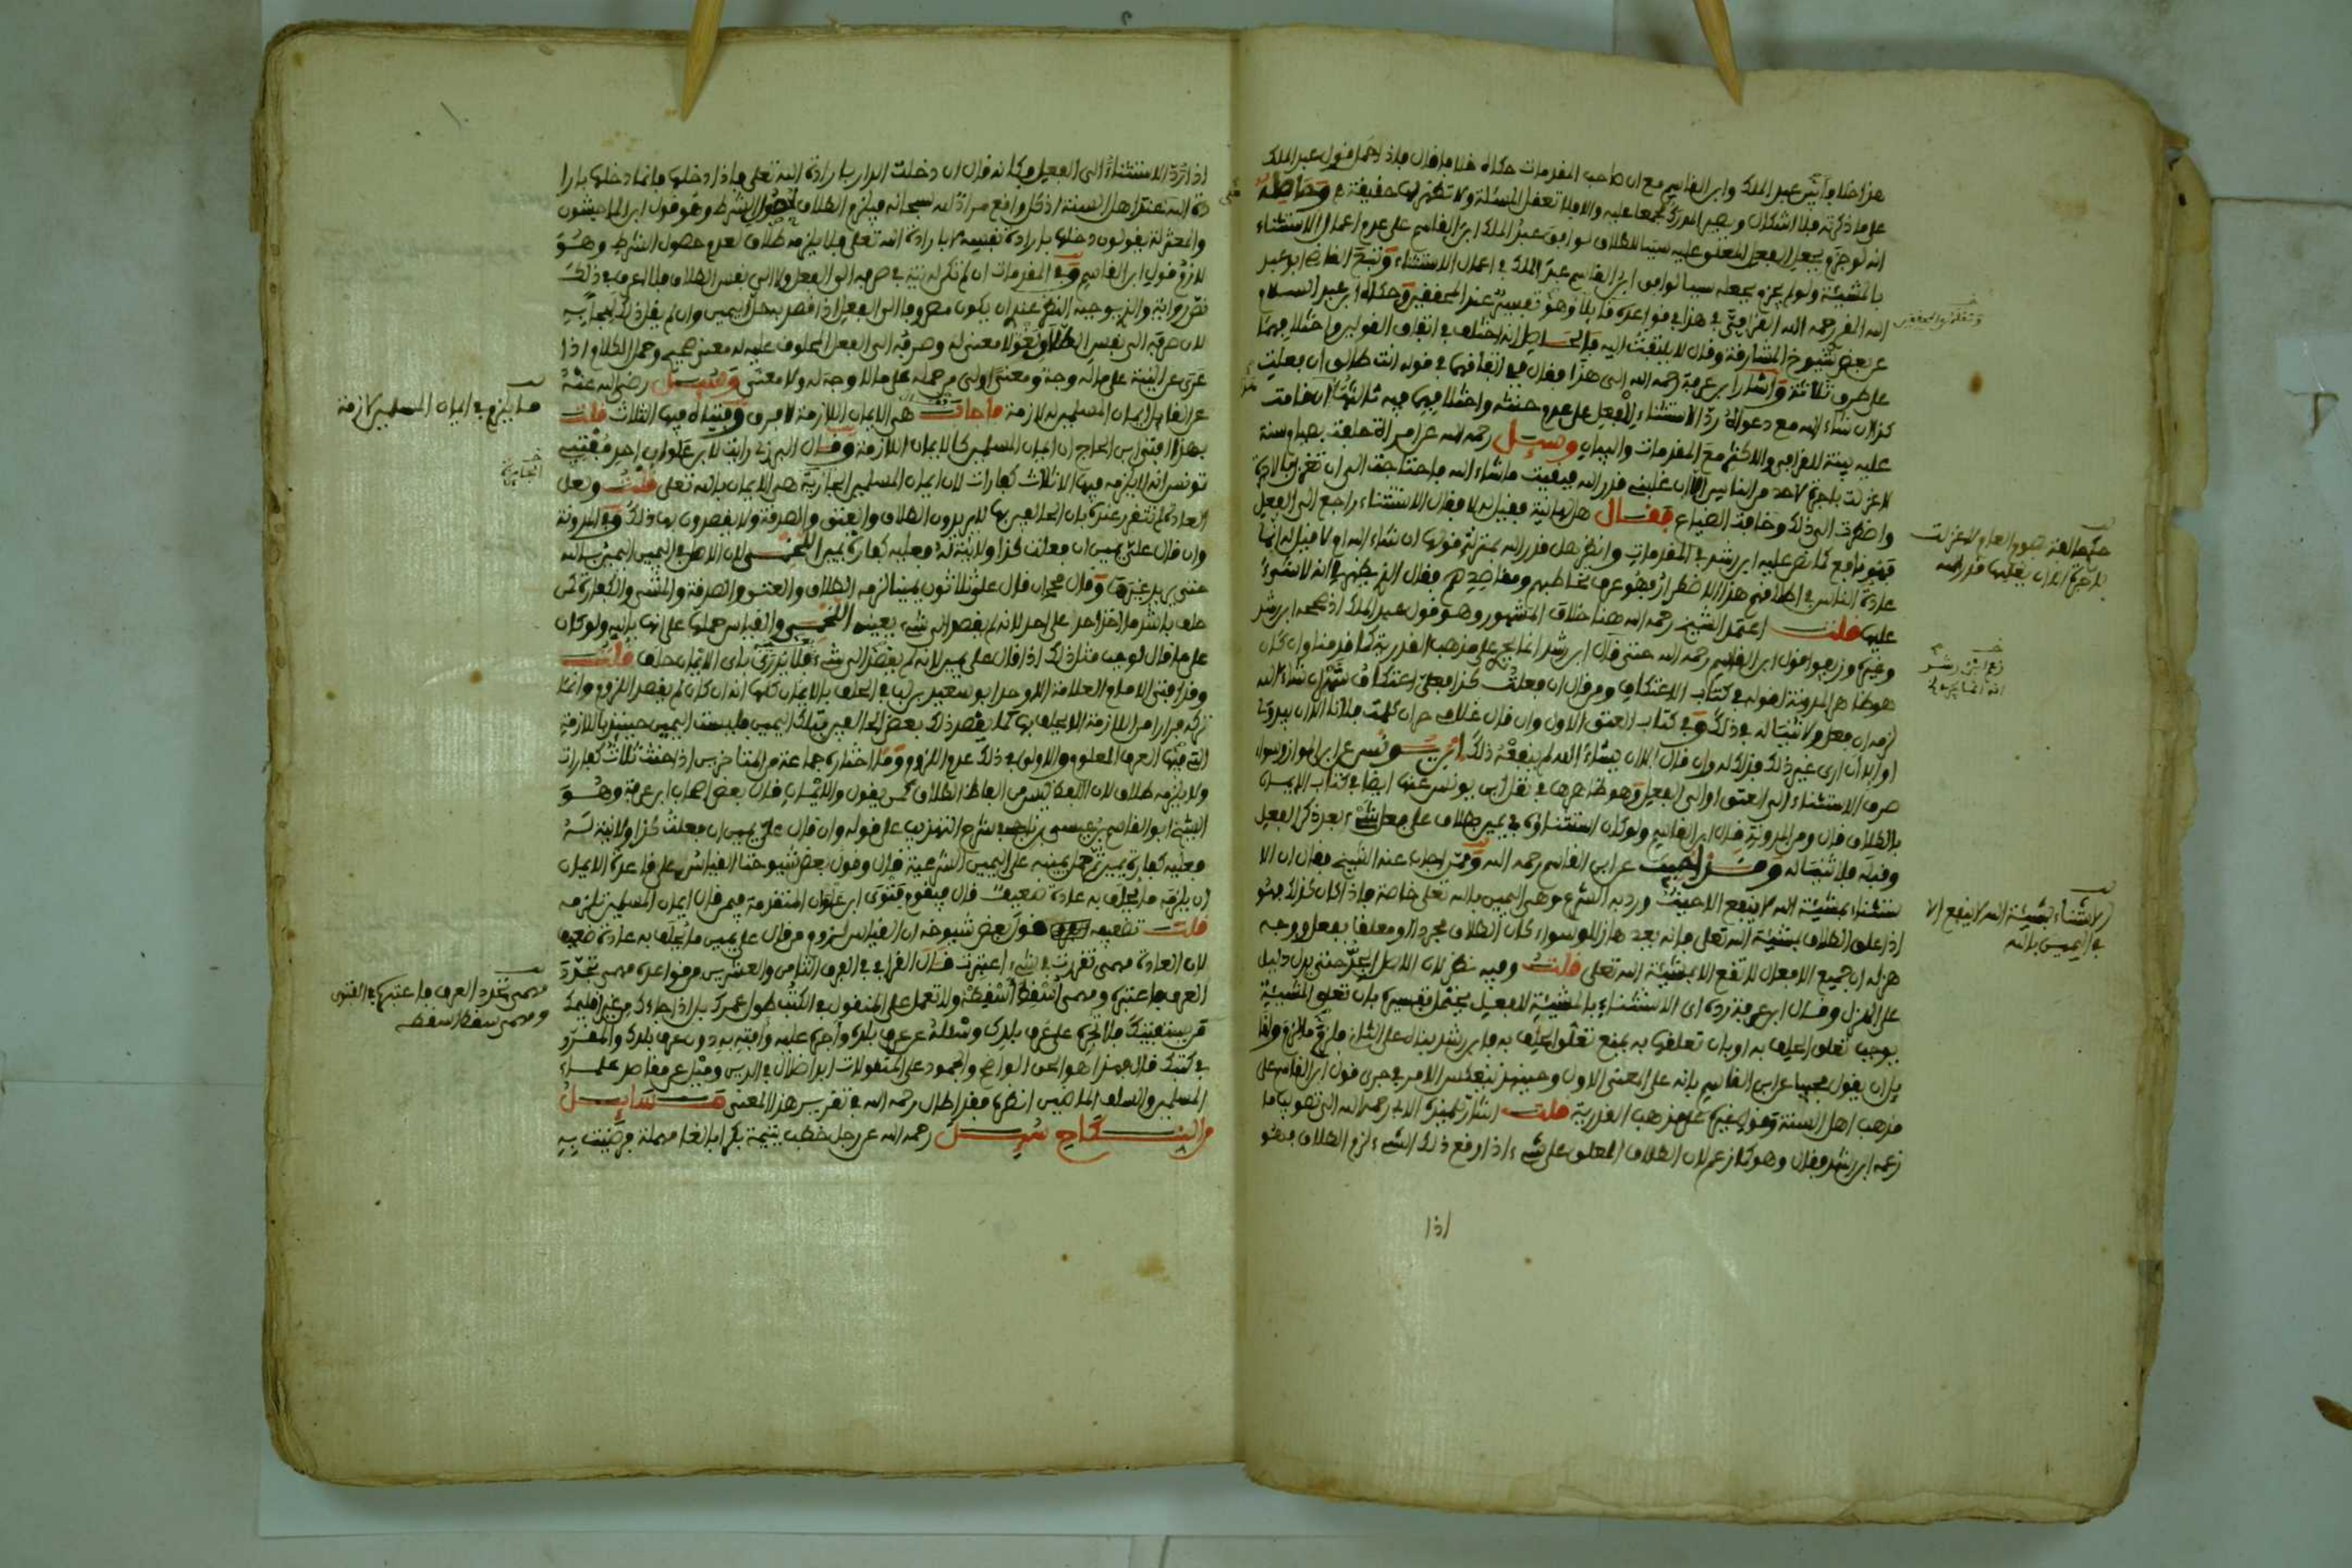 هذا خلاف بين عبد الملك وابن القاسم مع ان صاحب المقدمات حكاه خلافا فان قلت فاذا حمل قول عبد الملك
على ما ذكرته فلا اشكال ويصير المدرك مجمعا عليه والا فلا تعقل المسئلة ولا تظهر لها حقيقة وحاصله
انه لو جزم بجعل الفعل المعلق عليه سببا للطلاق لوافق عبد الملك ابن القاسم على عدم اعمال الاستثناء
بالمشيئة ولو لم يجزم بجعله سببا لوافق ابن القاسم عبد الملك في اعمال الاستثناء وتبع القاضي ابو عبد
الله المقري رحمه الله القرافي في هذا في قواعده قائلا وهو تفسير عند المحققين وحكاه ابن عبد السلام
عن بعض شيوخ المشارقة وقال لا يلتفت اليه فالحاصل انه اختلف في اتفاق القولين واختلافهما
على طرق ثلاثة واشار ابن عرفة رحمه الله الى هذا فقال في اتفاقهما في قوله انت طالق ان فعلت
كذا ان شاء الله مع دعواه رد الاستثناء للفعل على عدم حنثه واختلافهما فيه ثالثها ان قامت
عليه بينة للقرافي والاكثر مع المقدمات والبيان وسئل رحمه الله عن امراة حلفت بصيام سنة
لا غزلت باجرة لاحد من الناس الا ان غلبني قدر الله فبقيت ما شاء الله فاحتاجت الى ان تغزل بالاجرة
واضطرت الى ذلك وخافت الضياع فقال هل لها نية فقيل له لا فقال الاستثناء راجع الى الفعل
فهو نافع كما نص عليه ابن رشد في المقدمات وانظر هل قدر الله بمنزلة قولها ان شاء الله او لا قيل له انما
عادة الناس في اطلاقهم هذا الاضطرار فهو عرف تخاطبهم ومقاصدهم فقال الذي يظهر لي انه لا شيء
عليها قلت اعتمد الشيخ رحمه الله هنا خلاف المشهور وهو قول عبد الملك اذ صححه ابن رشد
وغيره وزيفوا قول ابن القاسم رحمه الله حتى قال ابن رشد انما يجري على مذهب القدرية كما قدمنا وان كان
هو ظاهر المدونة لقوله في كتاب الاعتكاف ومن قال ان فعلت كذا فعلي اعتكاف شهر ان شاء الله
لزمه ان فعل ولا ثنيا له في ذلك وفي كتاب العتق الاول وان قال غلامي حر ان كلمت فلانا الا ان يبدو لي
او الا ان ارى غير ذلك فذلك له وان قال الا ان يشاء الله لم ينفعه ذلك ابن يونس عن ابن المواز وسواء
صرف الاستثناء الى العتق او الى الفعل وهو ظاهرها في نقل ابن يونس عنها ايضا في كتاب الايمان
بالطلاق قال ومن المدونة قال ابن القاسم ولو كان استثناؤه في يمين بطلاق على فعل شيء بعد ذكر الفعل
وقبله فلا ثنيا له وقد اجيب عن ابن القاسم رحمه الله وممن اجاب عنه الشيخ فقال ان الا
ستثناء بمشيئة الله لا ينفع الا حيث ورد به الشرع وهي اليمين بالله تعالى خاصة فاذا كان كذلك فهو
اذا علق الطلاق بمشيئة الله تعالى فانه يعد هازلا وسواء كان الطلاق مجردا او معلقا بفعل ووجه
هزله ان جميع الافعال لا تقع الا بمشيئة الله تعالى قلت وفيه نظر لان الاصل الجد حتى يدل دليل
على الهزل وقال ابن عرفة رده اي الاستثناء بالمشيئة للفعل يحتمل تفسيره بان تعلق المشيئة
يوجب تعلق الحلف به او بان تعلقها به يمنع تعلق الحلف به فابن رشد بناه على الثاني فالزمه ما لازم ولنا
بان يقول مجيبا عن ابن القاسم بانه على المعنى الاول وحينئذ ينعكس الامر في جري قول ابن القاسم على
مذهب اهل السنة وقول غيره على مذهب القدرية قلت اشار تلميذه الابي رحمه الله الى تصويب ما
زعمه ابن رشد فقال وهو كما زعم لان الطلاق المعلق على شيء اذا وقع ذلك الشيء لزم الطلاق فهو
اذا
وتعقبه المحققون
حكم المرة تصوم العام لا غزلت
باجرة الا ان يغلبها قدر الله
زعم ابن رشد
انه انما يجري على
الاستثناء بمشيئة الله لا ينفع الا
في اليمين بالله
اذا رد الاستثناء الى الفعل فكانه قال ان دخلت الدار بارادة الله تعالى فاذا دخلها فانما دخلها بارا
دة الله عند اهل السنة اذ كل واقع مراد لله سبحانه فيلزم الطلاق لحصول الشرط وهو قول ابن الماجشون
والمعتزلة يقولون دخلها بارادة نفسه لا بارادة الله تعالى فلا يلزمه طلاق لعدم حصول الشرط وهو
لازم قول ابن القاسم وفي المقدمات ان لم تكن له نية في صرفه الى الفعل ولا الى نفس الطلاق فلا اعرف في ذلك
نص رواية والذي يوجبه النظر عندي ان يكون مصروفا الى الفعل اذا قصر به حل اليمين وان لم يقل ذلك لجاجة
لان صرفه الى نفس الطلاق لغو لا معنى له وصرفه الى الفعل المحلوف عليه له معنى صحيح وحمل الكلام اذا
عري عن النية على ما له وجه ومعنى اولى من حمله على ما لا وجه له ولا معنى وسئل رضي الله عنه
عن القائل ايمان المسلمين لازمة فاجاب هي الايمان اللازمة لا فرق وفتياه فيها الثلاث قلت
بهذا افتى ابن الحاج ان ايمان المسلمين كالايمان اللازمة وقال البرزلي رايت لابن علوان احد مفتيي
تونس انه لا يلزمه فيها الا ثلاث كفارات لان ايمان المسلمين الجارية هي الايمان بالله تعالى قلت ولعل
العادة لم تتقرر عنده بان الحالفين بها لا يريدون الطلاق والعتق والصدقة ولا يقصدون بها ذلك وفي المدونة
وان قال علي يمين ان فعلت كذا ولا نية له فعليه كفارة يمين اللخمي لان الاصل في اليمين اليمين بالله
حتى يريد غيرها وقال محمد ان قال علي ثلاثون يمينا لزمه الطلاق والعتق والصدقة والمشي والكفارة كمن
حلف باشد ما اخذ احد على احد لانه لم يقصد الى شيء بعينه اللخمي والقياس حملها على انها بالله ولو كان
على ما قال لوجب مثل ذلك اذا قال علي يمين لانه لم يقصد الى شيء فلا يدري باي الايمان حلف قلت
وقد افتى الامام العلامة الاوحد ابو سعيد بن لب في الحلف بالايمان كلها انه ان كان لم يقصد اللزوم وانما
تركه فرارا من اللازمة الا يحلف بها كما يقصد ذلك بعض الحالفين بتلك اليمين فليست اليمين حينئذ باللازمة
التي فيها العرف المعلوم والاولى في ذلك عدم اللزوم وقد اختاره جماعة من المتاخرين اذا حنث ثلاث كفارات
ولا يلزمه طلاق لان اللفظ ليس من الفاظ الطلاق كمن يقول والايمان قال بعض اصحاب ابن عرفة وهو
الشيخ ابو القاسم بن عيسى بن ناجي في شرح التهذيب على قوله وان قال علي يمين ان فعلت كذا ولا نية له
فعليه كفارة يمين تحمل يمينه على اليمين الشرعية قال وقول بعض شيوخنا القياس على قاعدة الايمان
ان يلزمه ما يحلف به عادة ضعيف قال فيقوم فتوى ابن علوان المتقدمة فيمن قال ايمان المسلمين تلزمه
قلت تضعيفه قول بعض شيوخه ان القياس لزوم من قال علي يمين ما يحلف به عادة ضعيف
لان العادة مهما تقررت في شيء اعتبرت قال القرافي في الفرق الثامن والعشرين من قواعده مهما تجدد
العرف فاعتبره ومهما سقط اسقطه ولا تعمل على المنقول في الكتب طول عمرك بل اذا جاءك من غير اقليمك
قريب يستفتيك فلا تجره على عرف بلدك وسئله عن عرف بلده واجره عليه وافته به دون عرف بلدك والمقرر
في كتبك قال فهذا هو الحق الواضح والجمود على المنقولات ابدا ضلال في الدين وميل عن مقاصد علماء
المسلمين والسلف الماضين انظره فقد اطال رحمه الله في تقرير هذا المعنى مسايل
من النكاح سئل رحمه الله عن رجل خطب يتيمة بكرا بالغا مهملة فرضيت به
ما يلزم في ايمان المسلمين لازمة
الجارية
مهما تجدد العرف فاعتبره في الفتوى
ومهما سقط اسقطه